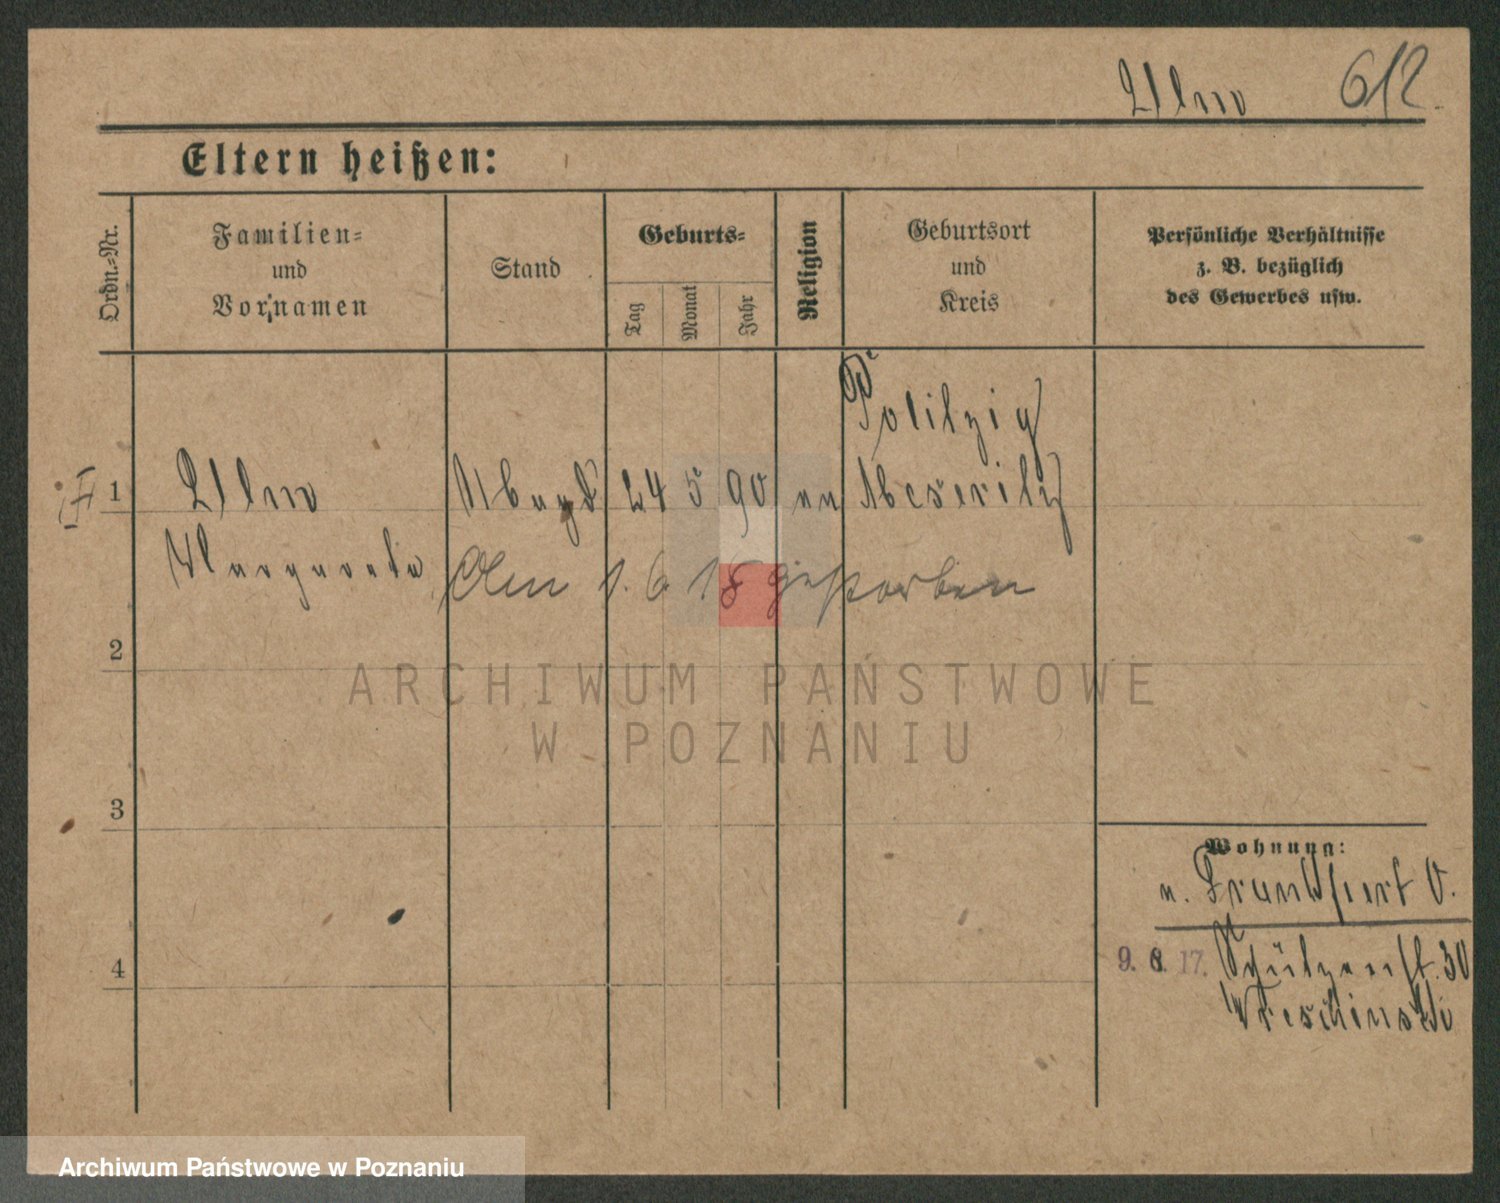 Ulm 612.
Eltern heißen:
Ordn.-Nr.
Familien-
und
Vornamen
Stand
Geburts-
Tag
Monat
Jahr
Religion
Geburtsort
und
Kreis
Persönliche Verhältnisse
z. B. bezüglich
des Gewerbes usw.
Politzig
1 Ulm Magd 24 5 90 Meseritz
Margarete Am 1. 6. 18 gestorben
2
ARCHIWUM PAŃSTWOWE
W POZNANIU
3
Wohnung:
n. Frankfurt O.
4
9. 8. 17. Schützenstr. 30
Archiwum Państwowe w Poznaniu